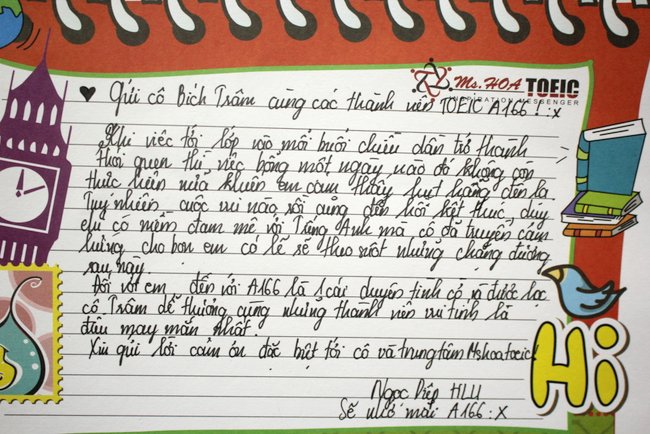 Ms.HOA TOEIC
INSPIRATION MESSENGER
♥ Gửi cô Bích Trâm cùng các thành viên TOEIC A166 ! :x
Khi việc tới lớp vào mỗi buổi chiều dần trở thành
thói quen thì việc bỗng một ngày nào đó không còn
thực hiện nữa khiến em cảm thấy hụt hẫng đến lạ
Tuy nhiên, cuộc vui nào rồi cũng đến hồi kết thúc, duy
có niềm đam mê với Tiếng Anh mà cô đã truyền cảm
hứng cho bọn em có lẽ sẽ theo suốt những chặng đường
sau này.
Đối với em, đến với A166 là 1 cái duyên tình cờ và được học
cô Trâm dễ thương cùng những thành viên vui tính là
điều may mắn nhất.
Xin gửi lời cảm ơn đặc biệt tới cô và trung tâm Mshoatoeic!
Ngọc Diệp HLU
Sẽ nhớ mãi A166 :X
Hi